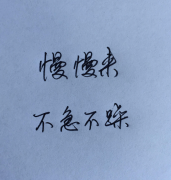 慢慢来
不急不躁